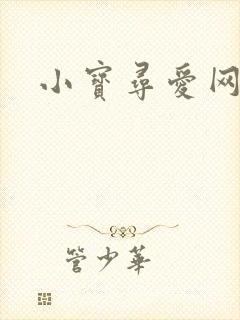 小寳尋愛网
管少華